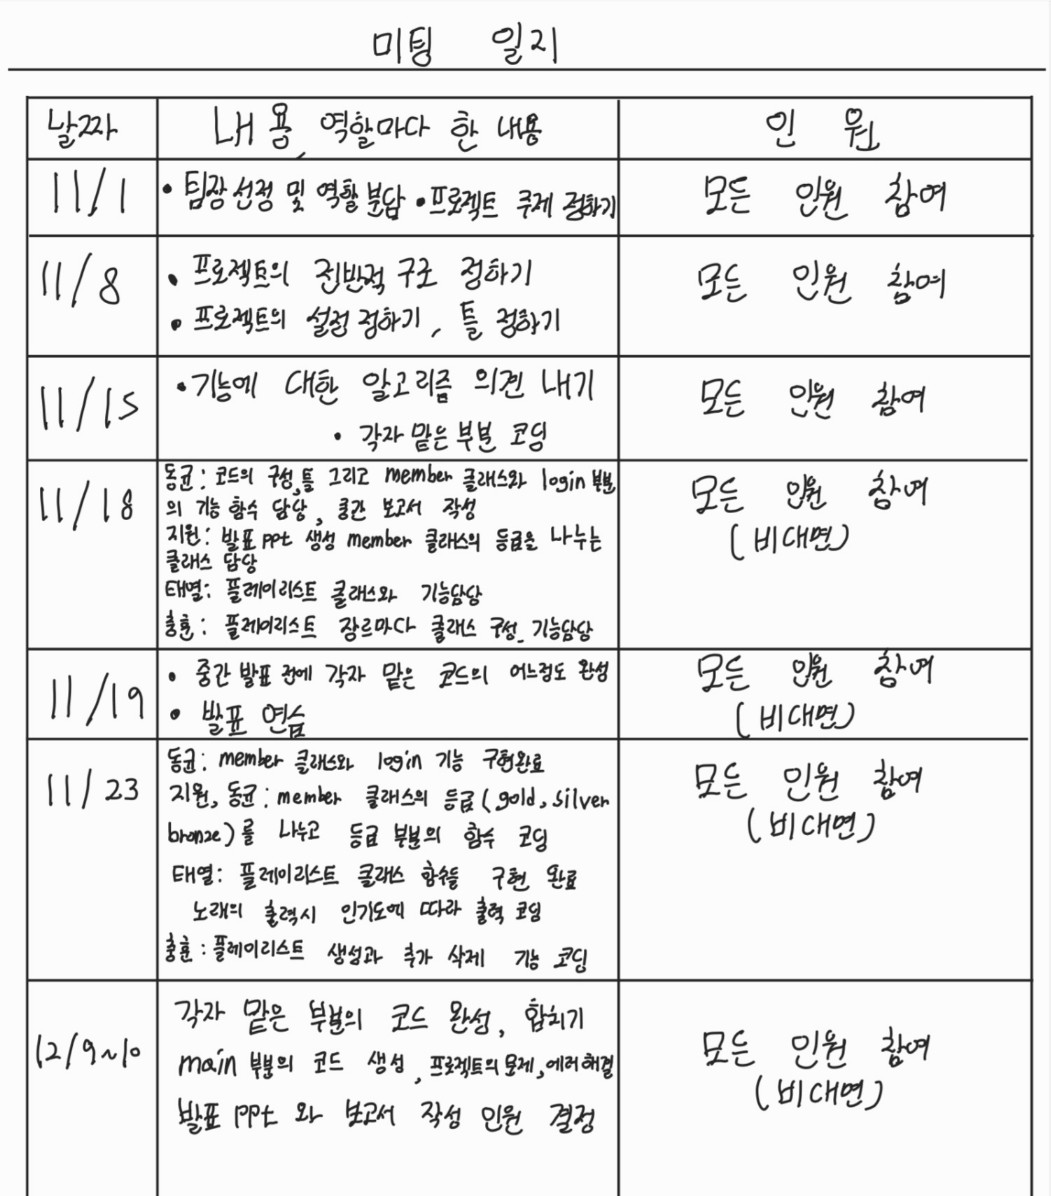 미팅 일지
날짜 내용, 역할마다 한 내용 인원
11/1 • 팀장선정 및 역할분담 • 프로젝트 주제 정하기 모든 인원 참여
11/8 • 프로젝트의 전반적 구조 정하기 모든 인원 참여
• 프로젝트의 설정 정하기, 틀 정하기
11/15 • 기능에 대한 알고리즘 의견 내기 모든 인원 참여
• 각자 맡은 부분 코딩
11/18 동균: 코드의 구성,틀 그리고 member 클래스와 login 부분 모든 인원 참여
의 기능 함수 담당, 중간 보고서 작성 (비대면)
지원: 발표 ppt 생성 member 클래스의 등급을 나누는
클래스 담당
태열: 플레이리스트 클래스와 기능담당
충훈: 플레이리스트 장르마다 클래스 구성, 기능담당
11/19 • 중간 발표 전에 각자 맡은 코드의 어느정도 완성 모든 인원 참여
• 발표 연습 (비대면)
11/23 동균: member 클래스와 login 기능 구현완료 모든 인원 참여
지원, 동균: member 클래스의 등급(gold, silver (비대면)
bronze)를 나누고 등급 부분의 함수 코딩
태열: 플레이리스트 클래스 함수들 구현 완료
노래의 출력시 인기도에 따라 출력 코딩
충훈: 플레이리스트 생성과 추가 삭제 기능 코딩
12/9~10 각자 맡은 부분의 코드 완성, 합치기 모든 인원 참여
main 부분의 코드 생성, 프로젝트의 문제, 에러해결 (비대면)
발표 ppt 와 보고서 작성 인원 결정